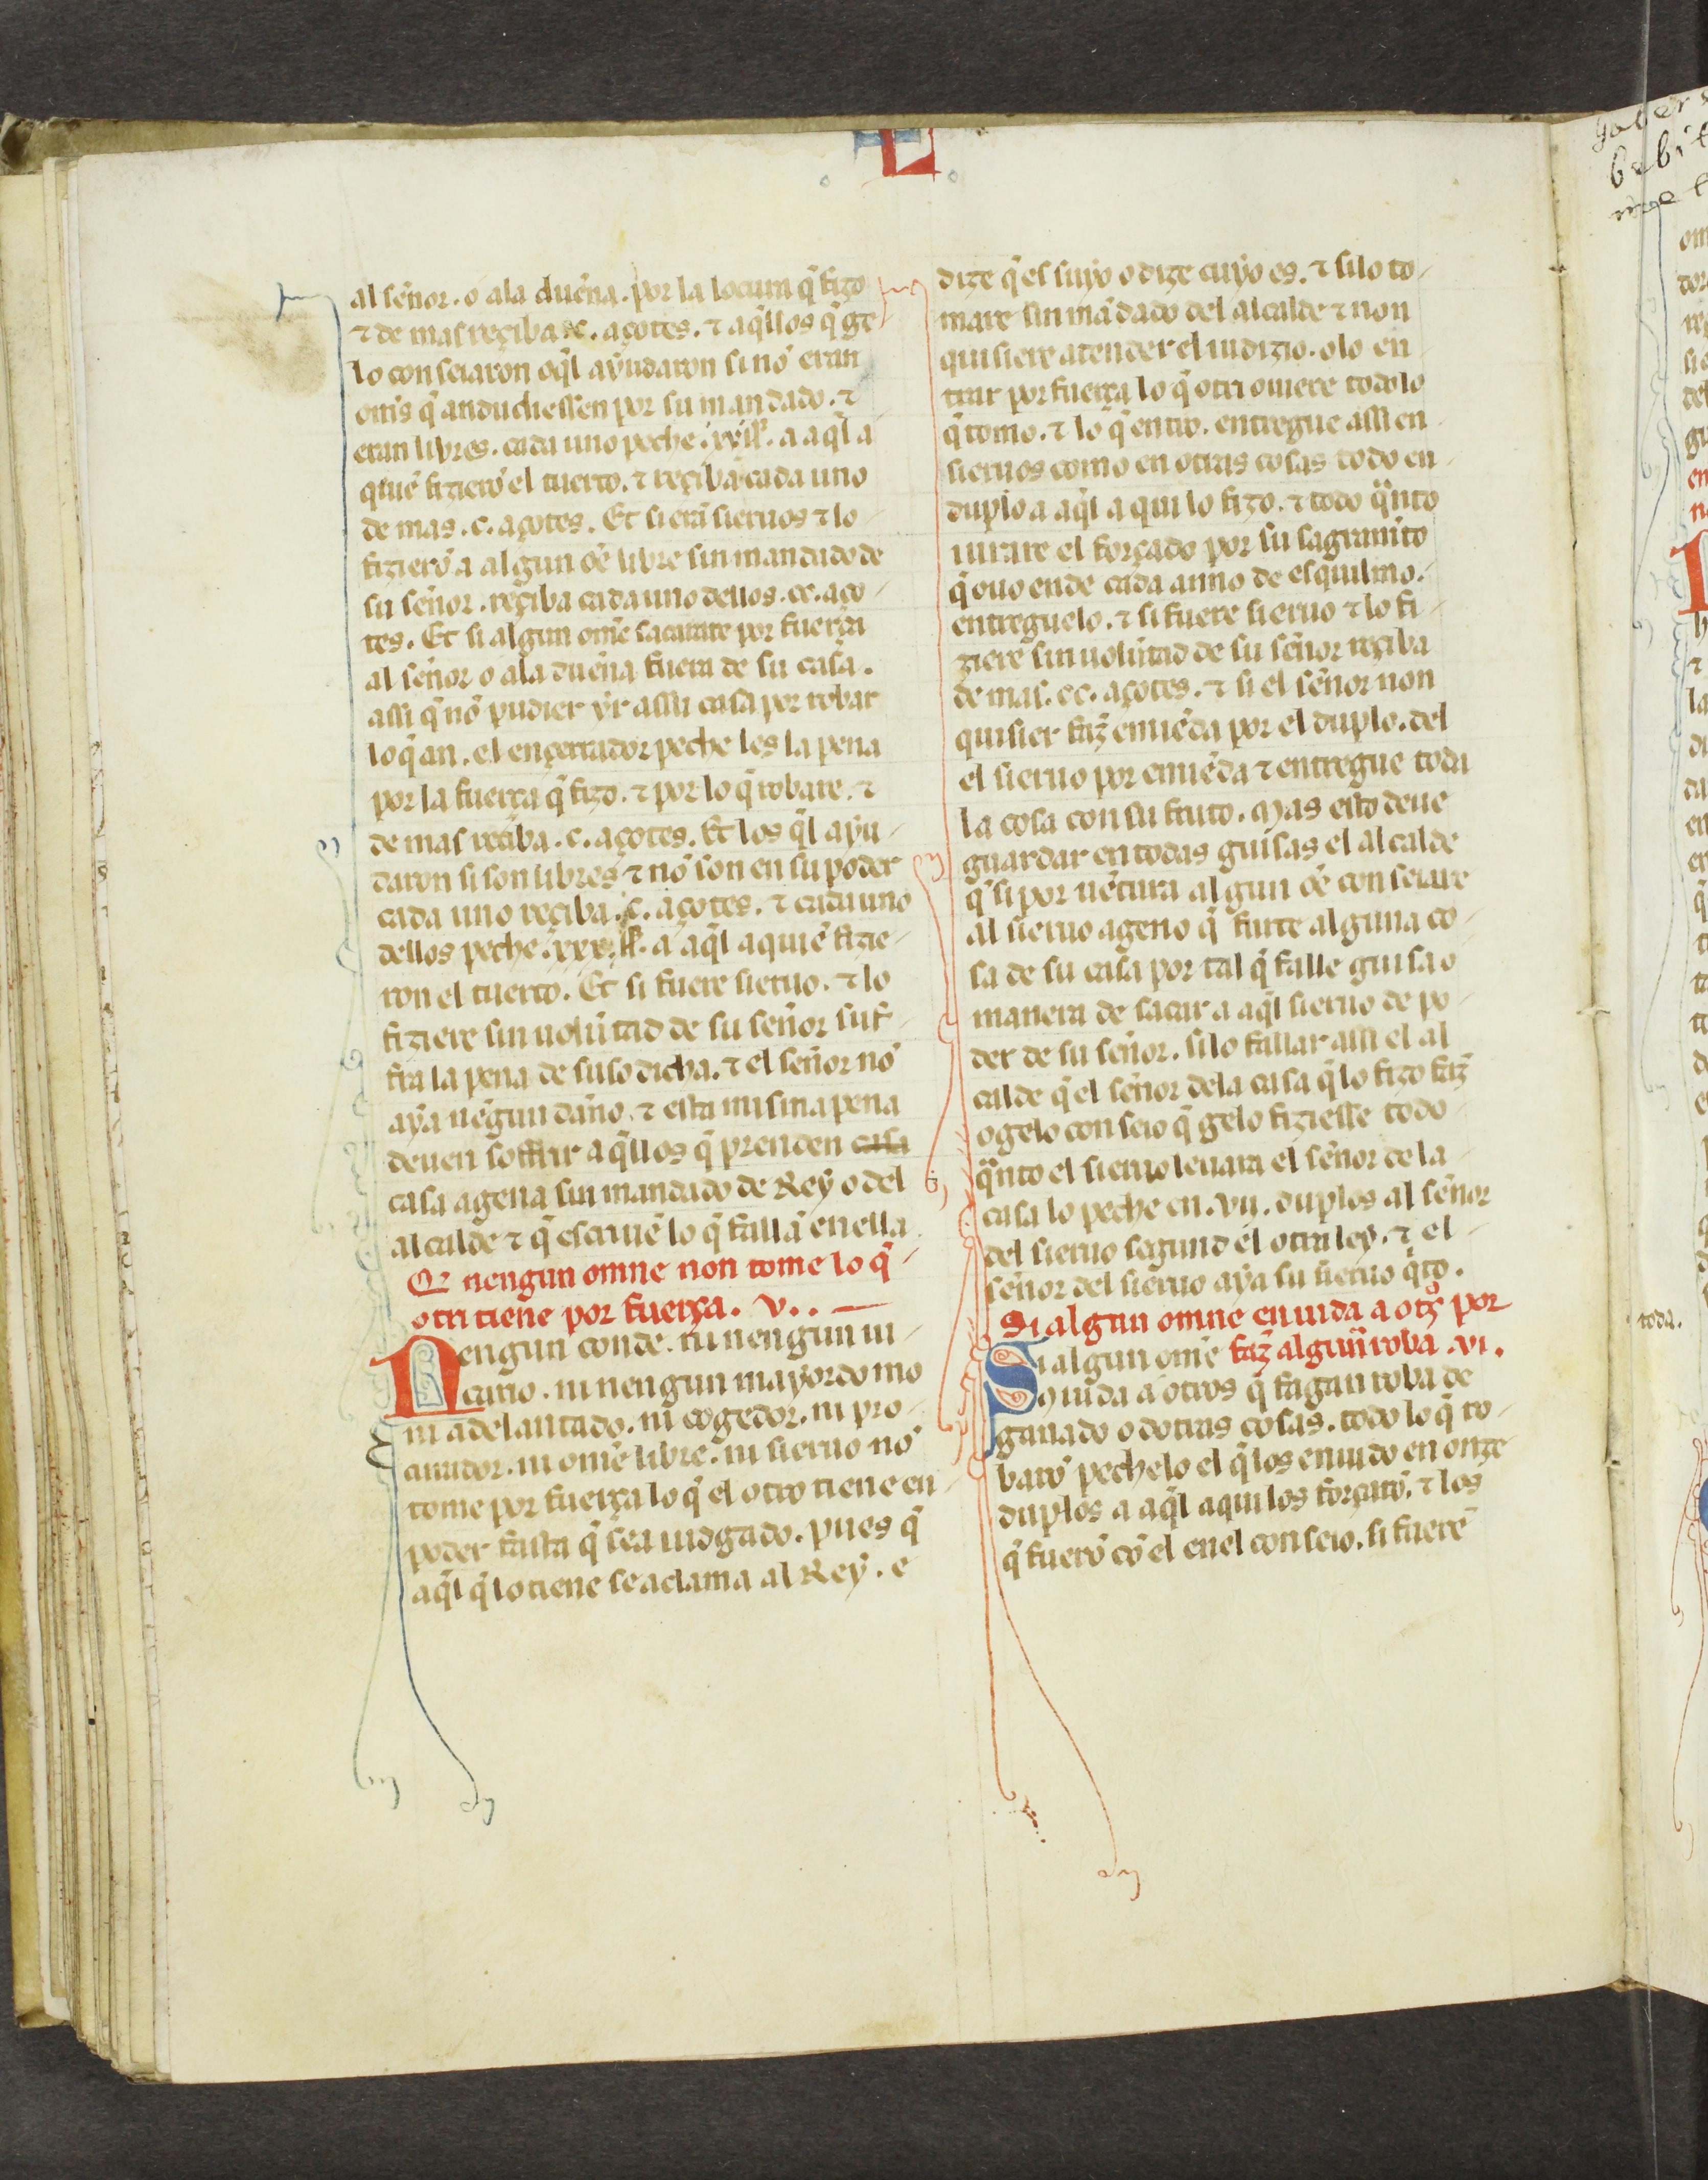 L
al señor. o ala dueña. por la locura q̃ fizo
⁊ de mas reçiba .c. açotes. ⁊ aq̃llos q̃ ge
lo conseiaron oq̃l ayudaron si nõ eran
om̃s q̃ anduchessen por su mandado. ⁊
eran libres. cada uno peche .xxx. ſſ. a aq̃l a
quiẽ fizierõ el tuerto. ⁊ reçiba cada uno
de mas .c. açotes. Et si erã sieruos ⁊ lo
fizierõ a algun õe libre sin mandado de
su señor. reçiba cada uno dellos .cc. aço-
tes. Et si algun om̃e sacare por fuerça
al señor o ala dueña fuera de su casa.
assi q̃ nõ pudier yr assu casa por robar
lo q̃ an. el ençerrador peche les la pena
por la fuerça q̃ fizo. ⁊ por lo q̃ robare. ⁊
de mas reciba .c. açotes. Et los q̃l ayu-
daron si son libres ⁊ nõ son en su poder
cada uno reçiba .c. açotes. ⁊ cada uno
dellos peche .xxx. ſſ. a aq̃l aquiẽ fizie-
ron el tuerto. Et si fuere sieruo. ⁊ lo
fiziere sin uolũtad de su señor suf-
fra la pena de suso dicha. ⁊ el señor nõ
aya nẽgun daño. ⁊ esta misma pena
deuen soffrir aq̃llos q̃ prenden casa
casa agena sin mandado de Rey o del
alcalde ⁊ q̃ escriuẽ lo q̃ fallã en ella.
Q̃ nengun omne non tome lo q̃
otri tiene por fuerça. V.
Nengun conde. ni nengun ui-
cario. ni nengun mayordomo
ni adelantado. ni cogedor. ni pro-
curador. ni om̃e libre. ni sieruo nõ
tome por fuerça lo q̃ el otro tiene en
poder fasta q̃ sea iudgado. pues q̃
aq̃l q̃ lo tiene se aclama al Rey. e
dize q̃ es suyo o dize cuyo es. ⁊ si lo to-
mare sin mãdado del alcalde ⁊ non
quisiere atender el iudizio. o lo en-
trar por fuerça lo q̃ otri ouiere todo lo
q̃ tomo. ⁊ lo q̃ entro. entregue assi en
sieruos como en otras cosas todo en
duplo a aq̃l a qui lo fizo. ⁊ todo q̃nto
iurare el forçado por su sagramẽto
q̃ ouo ende cada anno de esquilmo.
entreguelo. ⁊ si fuere sieruo ⁊ lo fi-
ziere sin uolũtad de su señor reçiba
de mas .cc. açotes. ⁊ si el señor non
quisier faz̃ emiẽda por el duplo. del
el sieruo por emiẽda ⁊ entregue toda
la cosa con su fruto. Mas esto deue
guardar en todas guisas el alcalde
q̃ si por uẽtura algun õe conseiare
al sieruo ageno q̃ furte alguna co-
sa de su casa por tal q̃ falle guisa o
manera de sacar a aq̃l sieruo de po-
der de su señor. si lo fallar assi el al
calde q̃ el señor dela casa q̃ lo fizo faz̃
o gelo conseio q̃ gelo fiziesse todo
q̃nto el sieruo leuara el señor de la
casa lo peche en .vii. duplos al señor
del sieruo segund el otra ley. ⁊ el
señor del sieruo aya su sieruo q̃to.
Si algun omne enuida a otr̃ por
faz̃ algũa roba .vi.
Si algun om̃e
enuida a otros q̃ fagan roba de
ganado o dotras cosas. todo lo q̃ ro-
barõ pechelo el q̃ los enuido en onze
duplos a aq̃l aqui los forçarõ. ⁊ los
q̃ fuerõ cõ el enel conseio. si fuerẽ
toda.